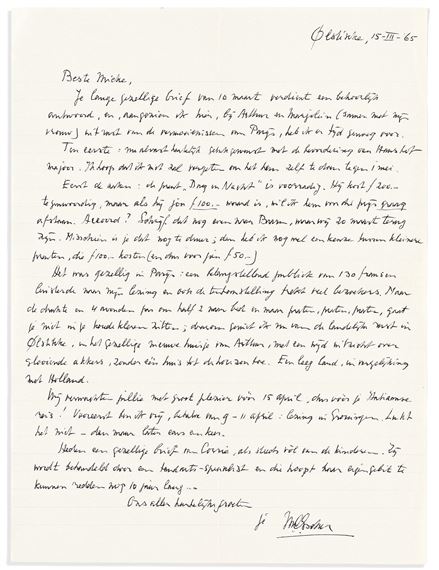 Ølstikke, 15-III-'65
Beste Mieke,
Je lange gezellige brief van 10 maart verdient een behoorlijk
antwoord, en, aangezien ik hier, bij Arthur en Marjolein (samen met mijn
vrouw) uitrust van de vermoeienissen van Parijs, heb ik er tijd genoeg voor.
Ten eerste: hartelijk gelukgewenst met de bevordering van Hans tot
majoor. Ik hoop dat ik niet zal vergeten om het hem zelf te doen tegen 1 mei.
Eerst de zaken: de prent "Dag en Nacht" is voorradig. Hij kost f 200.—
tegenwoordig, maar als hij jou f 100.— waard is, wil ik hem voor die prijs graag
afstaan. Accoord? Schrijf dat nog even naar Baarn, waar wij 20 maart terug
zijn. Misschien is je dat nog te duur; dan heb ik nog wel een keuze tussen kleinere
prenten, die f 100.— kosten (en dus voor jou f 50.—)
Het was gezellig in Parijs: een belangstellend publiek van 130 fransen
luisterde naar mijn lezing en ook de tentoonstelling trekt veel bezoekers. Maar
de drukte en 4 avonden pas om half 2 naar bed en maar praten, praten, praten, gaat
je niet in je koude kleren zitten; daarom geniet ik nu van de landelijke rust in
Ølstikke, in het gezellige nieuwe huisje van Arthur, met een wijd uitzicht over
glooiende akkers, zonder één huis tot de horizon toe. Een leeg land, in vergelijking
met Holland.
Wij verwachten jullie met groot plezier vóór 15 april, dus vóór je Italiaanse
reis! Voorzeert ben ik vrij, behalve van 9–11 april: lezing in Groningen. Lukt
het niet – dan maar later eens een keer.
Heden een gezellige brief van Corrie, als steeds vol van de kinderen. Zij
wordt behandeld door een tandarts-specialist en die hoopt haar eigen gebit te
kunnen redden nog 10 jaar lang...
Ons aller hartelijke groeten
je MC Escher